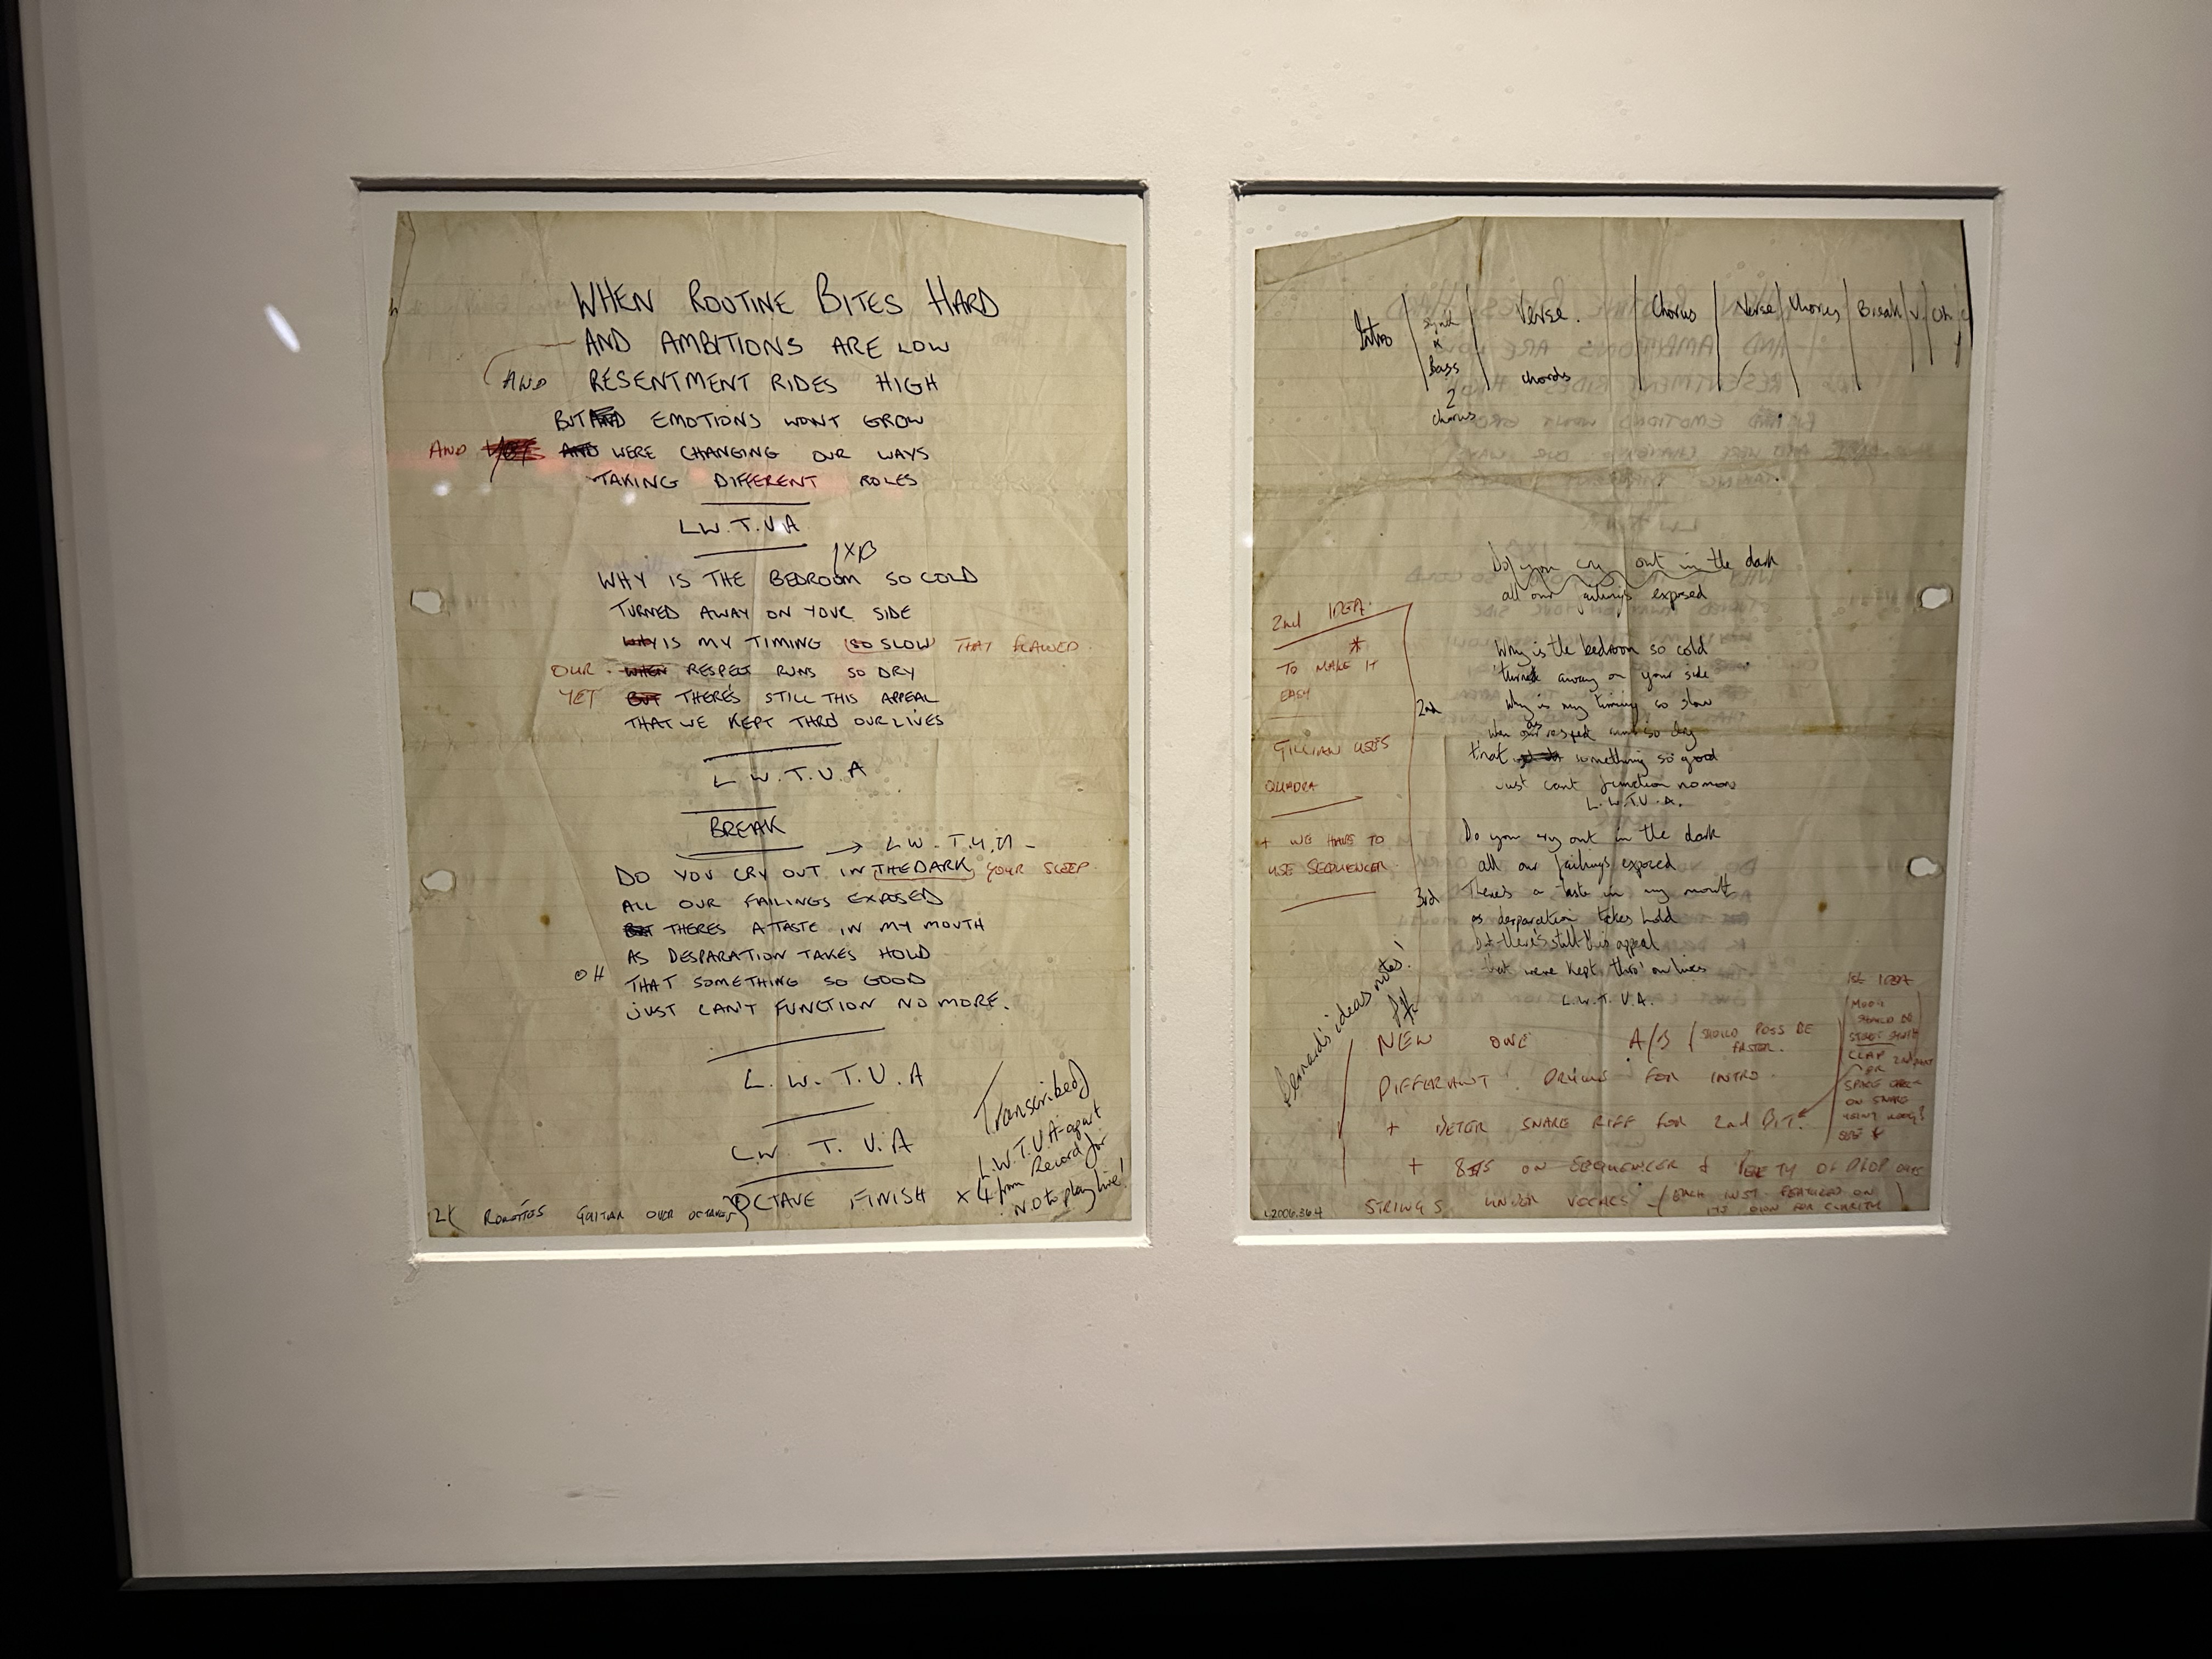 WHEN ROUTINE BITES HARD
AND AMBITIONS ARE LOW
AND RESENTMENT RIDES HIGH
BUT AND EMOTIONS WONT GROW
AND AND WERE CHANGING OUR WAYS
TAKING DIFFERENT ROLES
L.W.T.V.A
1XB
WHY IS THE BEDROOM SO COLD
TURNED AWAY ON YOUR SIDE
WHY IS MY TIMING SO SLOW THAT FLAWED
OUR WHEN RESPECT RUNS SO DRY
YET BUT THERE'S STILL THIS APPEAL
THAT WE KEPT THRO OUR LIVES
L.W.T.U.A
BREAK
→ L.W.T.U.A
DO YOU CRY OUT IN THE DARK YOUR SLEEP
ALL OUR FAILINGS EXPOSED
BUT THERES A TASTE IN MY MOUTH
AS DESPARATION TAKES HOLD
OH THAT SOMETHING SO GOOD
JUST CAN'T FUNCTION NO MORE.
L.W.T.U.A
L.W.T.U.A
OCTAVE FINISH X 4
GUITAR OVER OCTAVES
Transcribed
L.W.T.U.A - apart
from Record for
N.O to play live!
Intro | synth + Bass 2 chorus | Verse. chords | Chorus | Verse | Chorus | Break | V. | Ch
Do you cry out in the dark
all our failings exposed
2nd IDEA
*
TO MAKE IT
EASY
GILLIAN USES
QUADRA
+ WE HAVE TO
USE SEQUENCER
Why is the bedroom so cold
turned away on your side
2nd Why is my timing so slow
When our respect runs so dry
that something so good
just cant function no more
L.W.T.U.A.
Do you cry out in the dark
all our failings exposed
3rd There's a taste in my mouth
as desparation takes hold
But there's still this appeal
that were kept thro' our lives
L.W.T.U.A.
Bernard's ideas notes!
NEW ONE A/B (SHOULD POSS BE FASTER.
DIFFERANT DRUMS FOR INTRO.
+ BETER SNARE RIFF FOR 2nd BIT.
+ 8THS ON SEQUENCER + PLENTY OF DROP OUTS
STRINGS UNDER VOCALS (EACH INST. FEATURED ON
ITS OWN FOR CLARITY)
1st IDEA
MOOG
CLAP
OR
ON SNARE
L2006.364